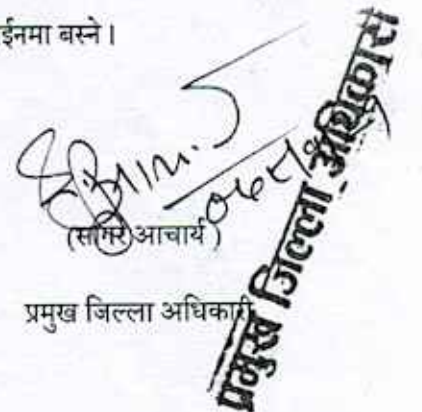 ईनमा बस्ने ।
(सागर आचार्य)
प्रमुख जिल्ला अधिकारी
प्रमुख जिल्ला अधिकारी